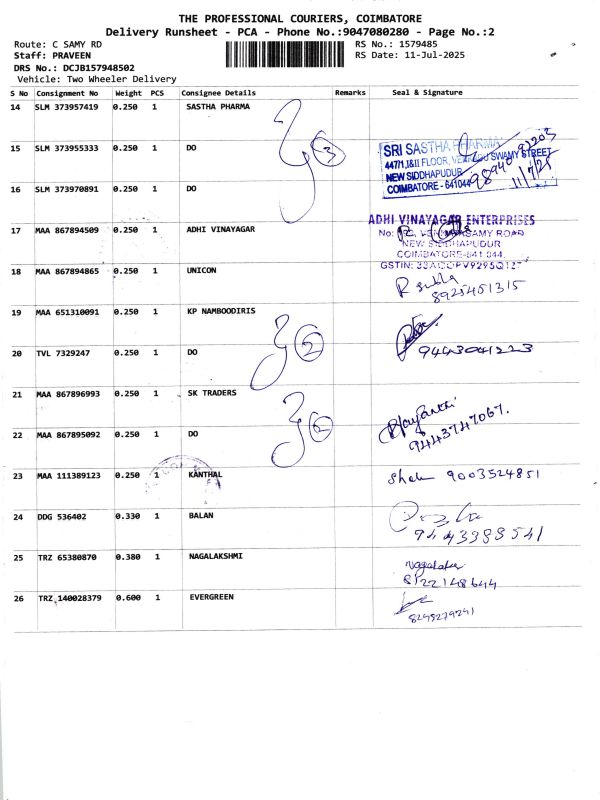 THE PROFESSIONAL COURIERS, COIMBATORE
Delivery Runsheet - PCA - Phone No.:9047080280 - Page No.:2
Route: C SAMY RD RS No.: 1579485
Staff: PRAVEEN RS Date: 11-Jul-2025
DRS No.: DCJB157948502
Vehicle: Two Wheeler Delivery
S No Consignment No Weight PCS Consignee Details Remarks Seal & Signature
14 SLM 373957419 0.250 1 SASTHA PHARMA
15 SLM 373955333 0.250 1 DO 3
SRI SASTHA PHARMA
447/1,I&II FLOOR, SWAMY STREET
NEW SIDDHAPUDUR
COIMBATORE - 641044
11/7/25
16 SLM 373970891 0.250 1 DO
17 MAA 867894509 0.250 1 ADHI VINAYAGAR
ADHI VINAYAGAR ENTERPRISES
NEW SIDDHAPUDUR
COIMBATORE-641 044.
18 MAA 867894865 0.250 1 UNICON
R subha
8925451315
19 MAA 651310091 0.250 1 KP NAMBOODIRIS
20 TVL 7329247 0.250 1 DO 2 9443041223
21 MAA 867896993 0.250 1 SK TRADERS 2
22 MAA 867895092 0.250 1 DO
9443747067.
23 MAA 111389123 0.250 1 KANTHAL 9003524851
24 DDG 536402 0.330 1 BALAN
9443388541
25 TRZ 65380870 0.380 1 NAGALAKSHMI
8122148644
26 TRZ 140028379 0.600 1 EVERGREEN
8248279241